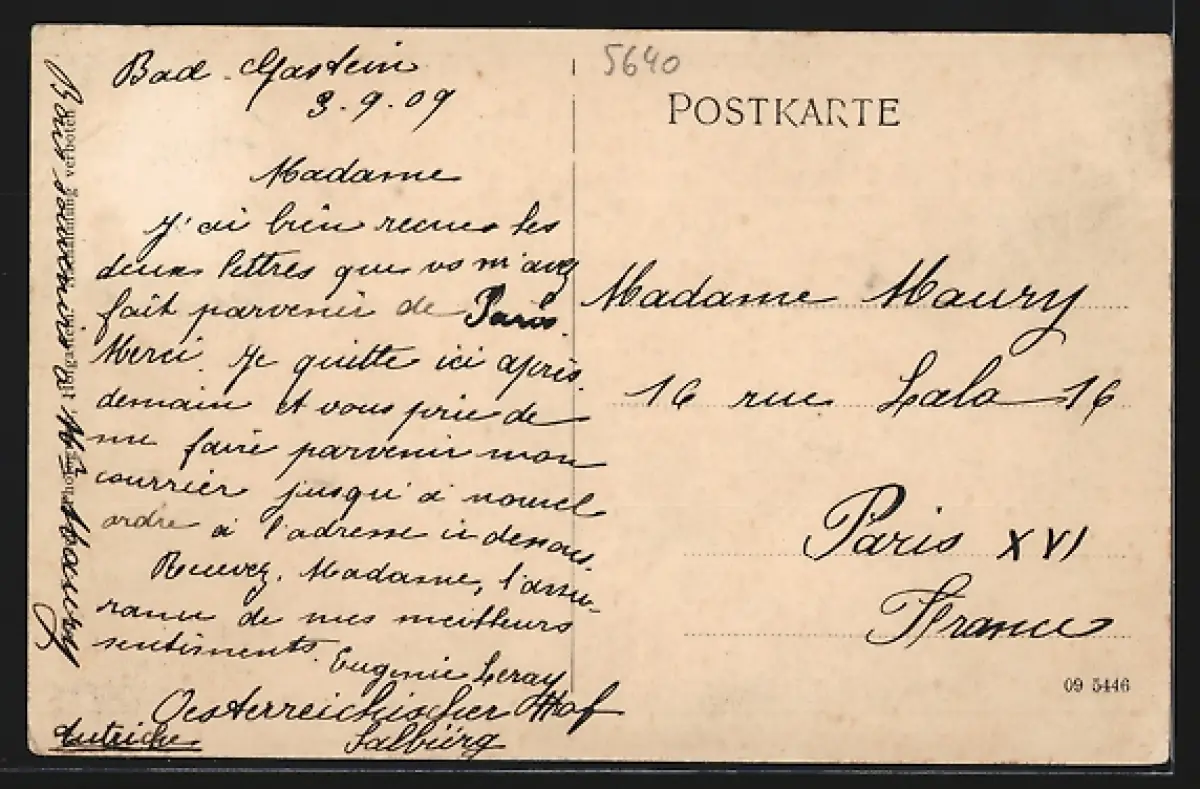 Bad-Gastein
3.9.09
Madame
J'ai bien recues les
deux lettres que vs m'avez
fait parvenir de Paris.
Merci. Je quitte ici après
demain et vous prie de
me faire parvenir mon
courrier jusqu'à nouvel
ordre à l'adresse ci dessous.
Recevez, Madame, l'assu-
rance de mes meilleurs
sentiments.
Eugenie Leray
Oesterreichischer Hof
Salbürg
Autriche
Bon souvenir à Mr Maury
verboten
5640
POSTKARTE
Madame Maury
16 rue Lalo 16
Paris XVI
France
09 5446